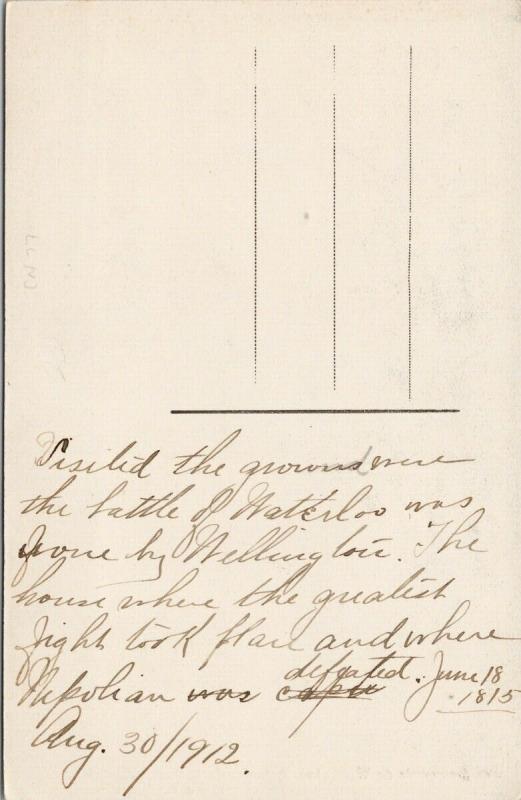 Visited the grownd were
the battle of Waterloo was
fone by Wellington. The
house where the greatest
fight took place and where
Nipolian ~~was~~ ~~captu~~ defeated. June 18
1815
Aug. 30/1912.